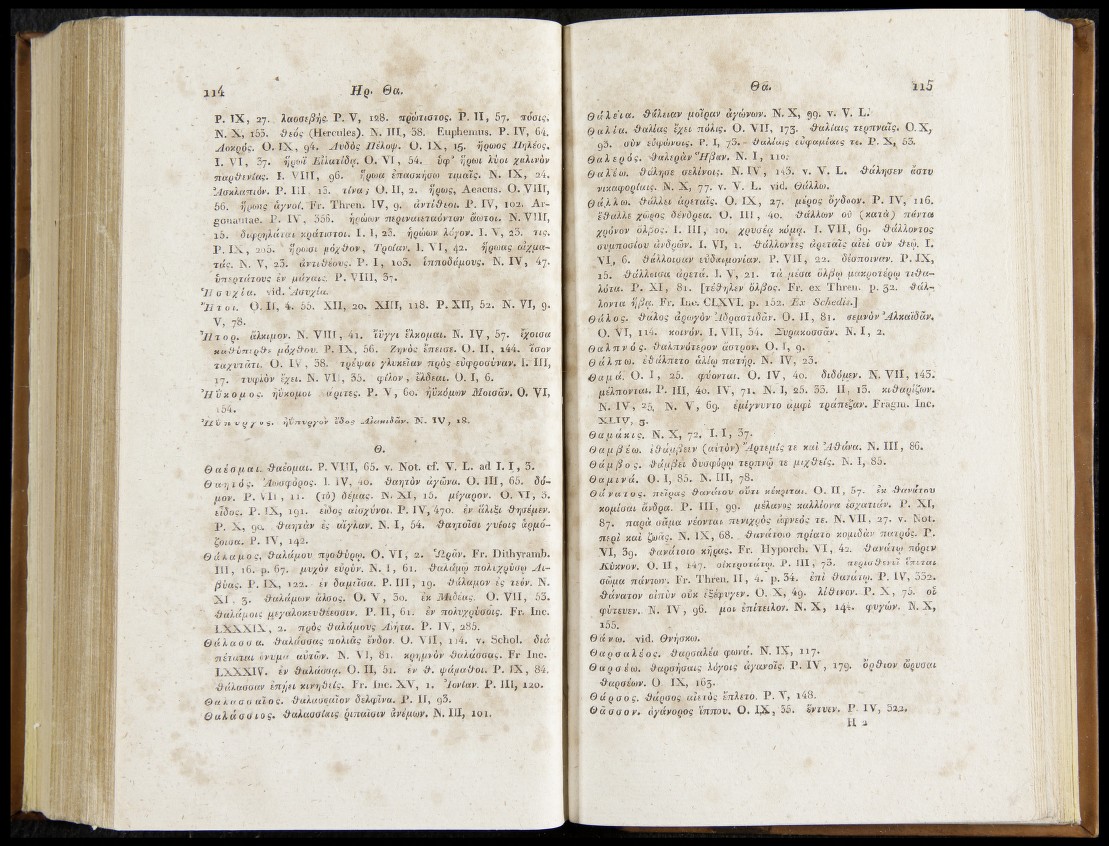 114 Ηρ. Θα.
P. IX, 27. λαοσεβής. P. V, 128. πρώτιστος. P. II, 57. πόσις.
N. X, 153. θεός (Hercules). N. III, 38. Euphemus. P. IV, 64.
Λοκρός. O. IX, 94. Λυδὸς Πέλοψ. O. IX, 15. ἥρωος Πηλέος.
I. VI, 37. ἥρωϊ Εἰλατίδᾳ. O. VI, 54. ὑφ’ ἥρωι λύοι χαλινὸν
παρθενίας. I. VIII, 96. ἥρωα ἐπασκήσω τιμαῖς. N. IX, 24.
Ἀσκλαπιόν. P. III, 13. τίνα; O. II, 2. ἥρως, Aeacus. O. VIII,
56. ἥρωες ἁγνοί. Fr. Thren. IV, 9. ἀντίθεοι. P. IV, 102. Ar-
gonautae. P. IV, 356. ἡρώων περιναιεταόντων ἄωτοι. N. VIII,
15. διφρηλάται κράτιστοι. I. I, 23. ἡρώων λόγον. I. V, 23. τις.
P. IX, 205. ἥρωσι μόχθον, Τροΐαν. I. VI, 42. ἥρωας αἰχμα-
τάς. N. V, 23. ἀντιθέους. P. I, 103. ἱπποδάμους. N. IV, 47.
ὑπερτάτους ἐν μάχαις. P. VIII, 37.
Ἡσυχία. vid. Ἀσυχία.
Ἤτοι. O. II, 4. 55. XII, 20. XIII, 118. P. XII, 52. N. VI, 9.
V, 78.
Ἦτορ. ἄλκιμον. N. VIII, 41. ἴϋγγι ἕλκομαι. N. IV, 57. ἴχοισα
καθύπερθε μόχθου. P. IX, 56. Ζηνὸς ἔπεισε. O. II, 144. ἴσον
ταχυτᾶτι. O. IV, 38. τρέψαι γλυκεῖαν πρὸς εὐφροσύναν. I. III,
17. τυφλὸν ἔχει. N. VII, 35. φίλον, ἔλδεαι. O. I, 6.
Ἠΰκομος. ἠΰκομοι άριτες. P. V, 60. ἠϋκόμων Μοισᾶν. O. VI,
154.
Ἠΰπυργος. ἠΰπυργον ἕδος Αἰακιδᾶν. N. IV, 18.
Θ.
Θαέομαι. θαέομαι. P. VIII, 65. v. Not. cf. V. L. ad I. I, 3.
Θαητός. Ἀωσφόρος. I. IV, 40. θαητὸν ἀγῶνα. O. III, 65. δό-
μον. P. VII, 11. (τὸ) δέμας. N. XI, 15. μέγαρον. O. VI, 3.
εἶδος. P. IX, 191. εἶδος αἰσχύνοι. P. IV, 470. ἐν ἅλιξι θησέμεν.
P. X, 90. θαητὰν ἐς αἴγλαν. N. I, 54. θαητοῖσι γυίοις ἁρμό-
ζοισα. P. IV, 142.
Θάλαμος, θαλάμου προθύρῳ. O. VI, 2. Ὡρᾶν. Fr. Dithyramb.
III, 16. p. 67. μυχὸν εὐρύν. N. I, 61. θαλάμῳ πολυχρύσῳ Λι-
βύας. P. IX, 122. ἐν δαμεῖσα. P. III, 19. θάλαμον ἐς τεόν. N.
XI, 3. θαλάμων ἄλσος. O. V, 30. ἐκ Μιδέας. O. VII, 53.
θαλάμοις μεγαλοκευθέεσσιν. P. II, 61. ἐν πολυχρύσοις. Fr. Inc.
LXXXIX, 2. πρὸς θαλάμους Αἰήτα. P. IV, 285.
Θάλασσα. θαλάσσας πολιᾶς ἔνδοι. O. VII, 114. v. Schol. διὰ
πέταται ὄνυμα αὐτῶν. N. VI, 81. κρημνὸν θαλάσσας. Fr Inc.
LXXXIV. ἐν θαλάσσᾳ. O. II, 51. ἐν θ. ψάμαθοι. P. IX, 84.
θάλασσαν ἐπῄει κινηθείς. Fr. Inc. XV, 1. Ἰονίαν. P. III, 120.
Θαλασσαῖος. θαλασσαῖον δελφῖνα. P. II, 93.
Θαλάσσιος. θαλασσίαις ῥιπαῖσιν ἀνέμων. N. III, 101.
Θα. 115
Θάλεια. θάλειαν μοῖραν ἀγώνων. N. X, 99. v. V. L.
Θαλία. θαλίας ἔχει πόλις. O. VII, 173. θαλίαις τερπναῖς. O. X,
93. σὺν εὐφώνοις. P. I, 73. θαλίαις εὐφαμίαις τε. P. X, 53.
Θαλερός. θαλερὰν Ἥβαν. N. I, 110.
Θαλέω. θάλησε σελίνοις. N. IV, 143. v. V. L. θάλησεν ἄστυ
νικαφορίαις. N. X, 77. v. V. L. vid. Θάλλω.
Θάλλω. θάλλει ἀρεταῖς. O. IX, 27. μέρος ὄγδοον. P. IV, 116.
ἔθαλλε χῶρος δένδρεα. O. III, 40. θάλλων οὐ (κατὰ) πάντα
χρόνον ὄλβος. I. III, 10. χρυσέᾳ κόμᾳ. I. VII, 69. θάλλοντος
συμποσίου ἀνδρῶν. I. VI, 1. θάλλοντες ἀρεταῖς αἰεὶ σὺν θεῷ. I.
VI, 6. θάλλοισαν εὐδαιμονίαν. P. VII, 22. δέσποιναν. P. IX,
15. θάλλοισα ἀρετά. I. V, 21. τὰ μέσα ὄλβῳ μακροτέρῳ τεθα-
λότα. P. XI, 81. [τέθηλεν ὄλβος. Fr. ex Thren. p. 32. θάλ-
λοντα ἥβᾳ. Fr. Inc. CLXVI. p. 152. Ex Schedis.]
Θάλος. θάλος ἀρωγὸν Ἀδραστιδᾶν. O. II, 81. σεμνὸν Ἀλκαϊδᾶν.
O. VI, 114. κοινόν. I. VII, 54. Συρακοσσᾶν. N. I, 2.
Θαλπνός. θαλπνότερον ἄστρον. O. I, 9.
Θάλπω. ἐθάλπετο ἀλίῳ πατήρ. N. IV, 23.
Θαμά. O. I, 25. φύονται. O. IV, 40. διδόμεν. N. VII, 143.
μέλπονται. P. III, 40. IV, 71. N. I, 25. 33. II, 13. κιθαρίζων.
N. IV, 25. N. V, 69. ἐμίγνυντο ἀμφὶ τράπεζαν. Fragm. Inc.
XLIV, 3.
Θαμάκις. N. X, 72. I. I, 37.
Θαμβέω. ἐθάμβεεν (αὐτὸν) Ἄρτεμίς τε καὶ Ἀθάνα. N. III, 86.
Θάμβος. θάμβει δυσφόρῳ τερπνῷ τε μιχθείς. N. I, 85.
Θαμινά. O. I, 85. N. III, 78.
Θάνατος. πείρας θανάτου οὔτι κέκριται. O. II, 57. ἐκ θανάτου
κομίσαι ἄνδρα. P. III, 99. μέλανος καλλίονα ἐσχατιάν. P. XI,
87. παρὰ σᾶμα νέονται πενιχρὸς ἀφνεός τε. N. VII, 27. v. Not.
περὶ καὶ ζωᾶς. N. IX, 68. θανάτοιο πρίατο κομιδὰν πατρός. P.
VI, 39. θανάτοιο κῆρας. Fr. Hyporch. VI, 42. θανάτῳ πόρεν
Κύκνον. O. II, 147. οἰκτροτάτῳ. P. III, 73. περισθενεῖ ἕπεται
σῶμα πάντων. Fr. Thren. II, 4. p. 34. ἐπὶ θανάτῳ. P. IV, 332.
θάνατον αἰπὺν οὐκ ἐξέφυγεν. O. X, 49. λίθινον. P. X, 75. οἱ
φύτευεν. N. IV, 96. μοι ἐπίτειλον. N. X, 144. φυγών. N. X,
155.
Θάνω. vid. Θνήσκω.
Θαρσαλέος. θαρσαλέα φωνά. N. IX, 117.
Θαρσέω. θαρσήσαις λόγοις ἀγανοῖς. P. IV, 179. ὄρθιον ὤρυσαι
θαρσέων. O. IX, 163.
Θάρσος. θάρσος αἰετὸς ἔπλετο. P. V, 148.
Θᾶσσον. ἀγάνορος ἵππου. O. IX, 35. ἔντυεν. P. IV, 322.
H 2